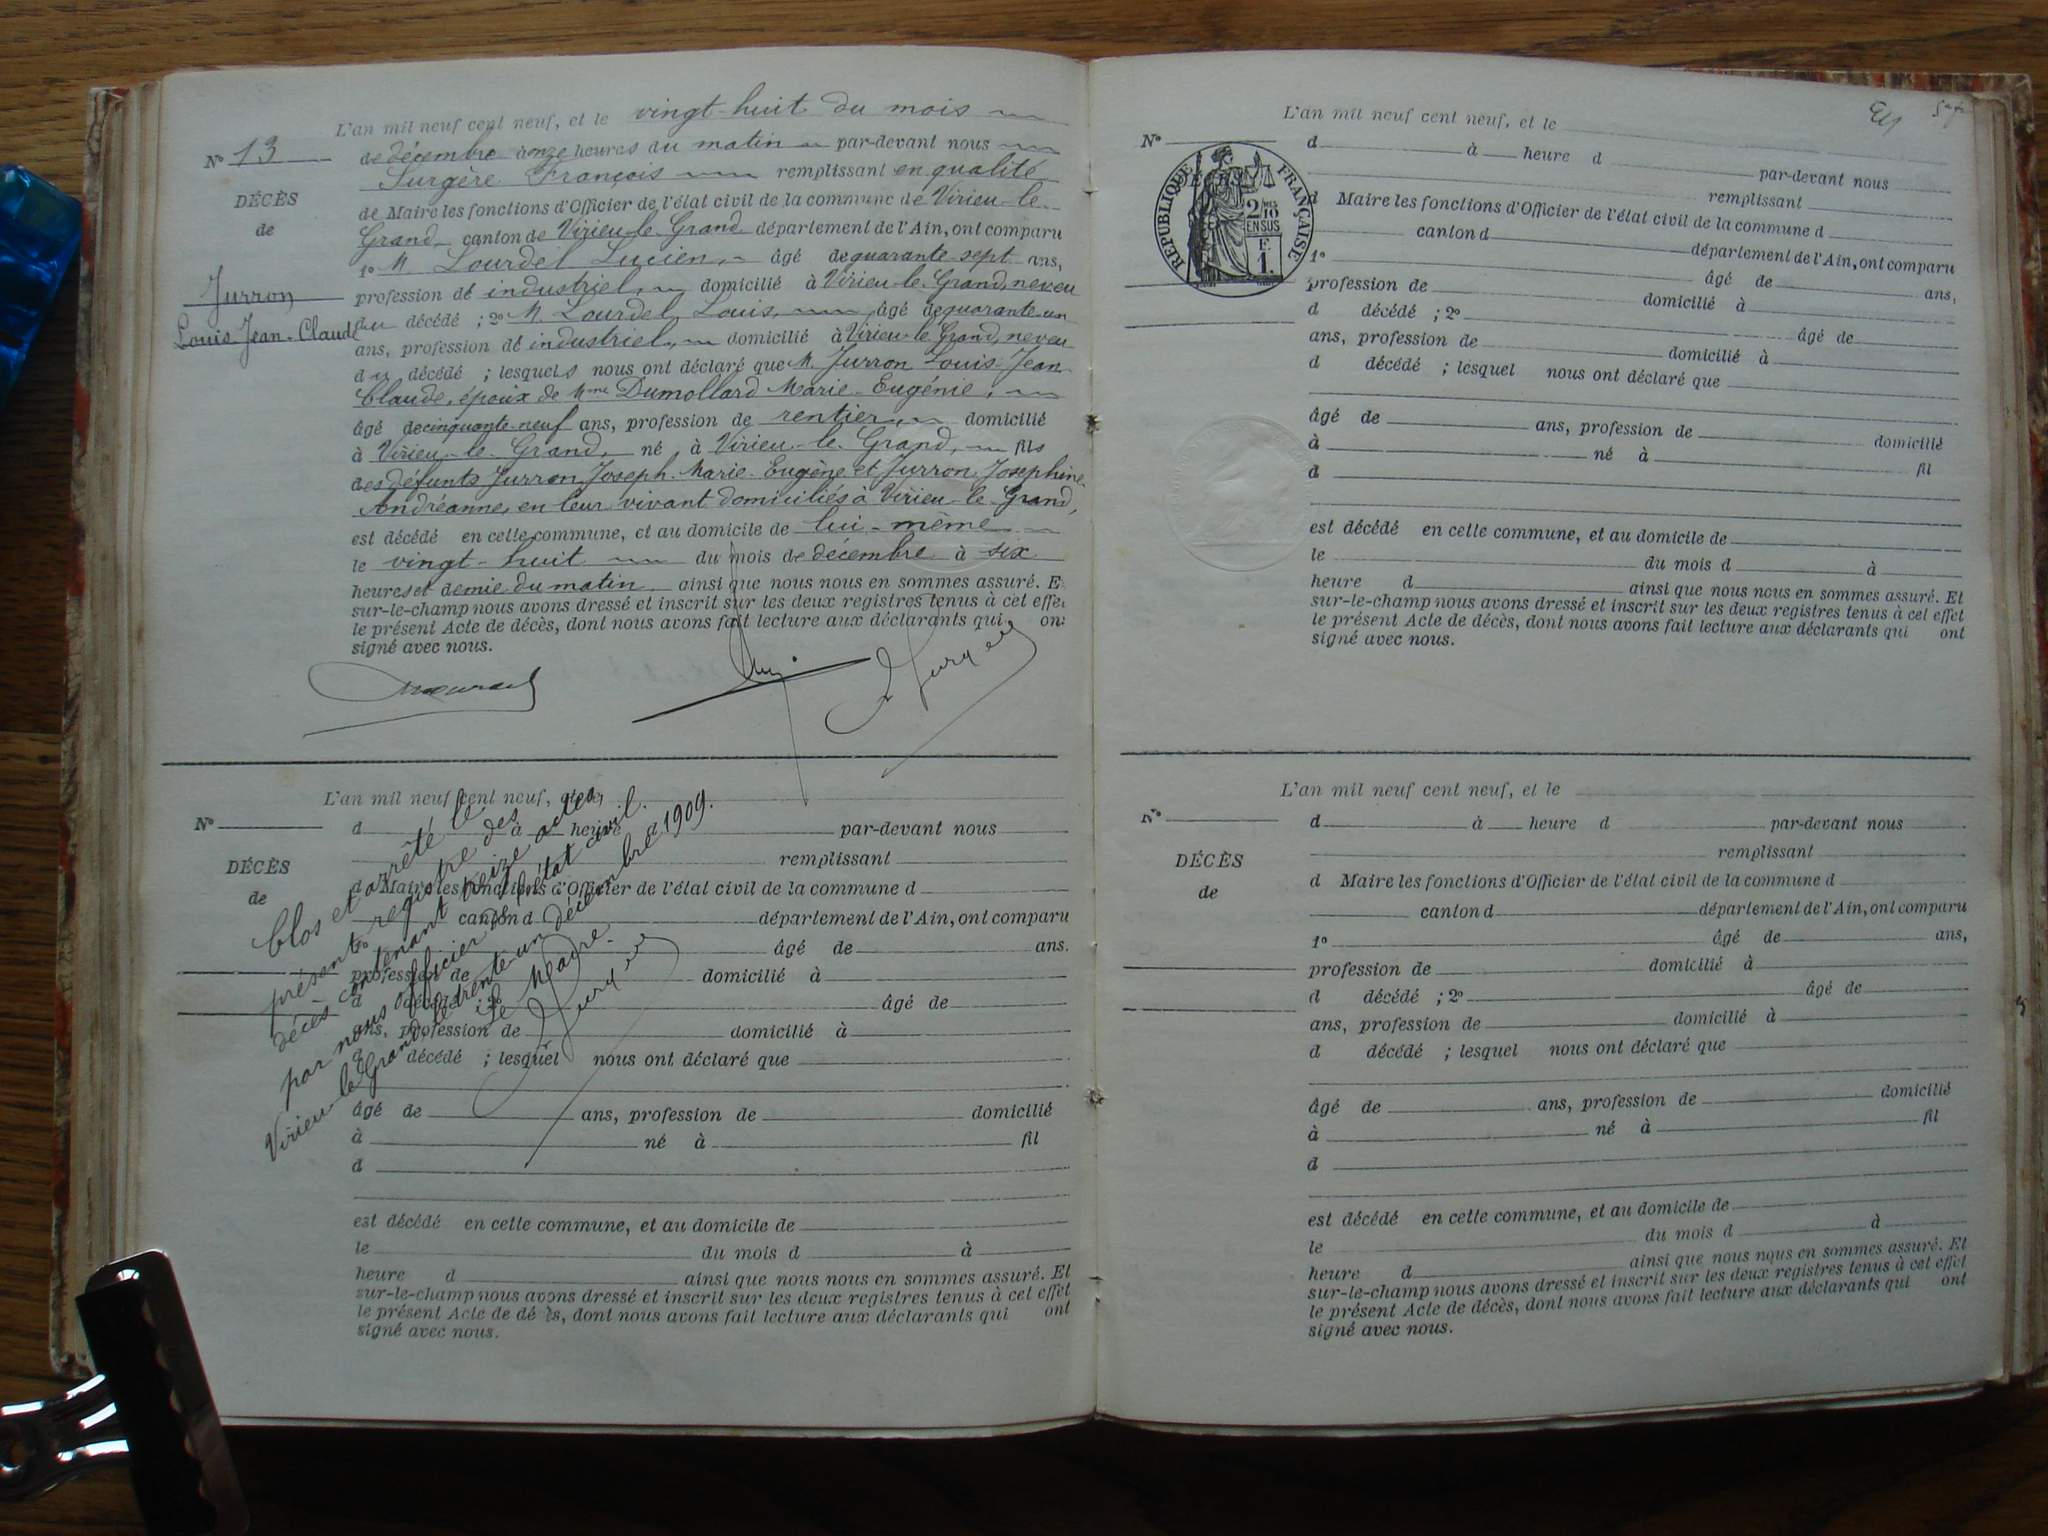 L'an mil neuf cent neuf, et le vingt-huit du mois
N° 13
de décembre à onze heures du matin par-devant nous
Surgère François remplissant en qualité
DÉCÈS
de Maire les fonctions d'Officier de l'état civil de la commune de Virieu-le-
de
Grand, canton de Virieu-le-Grand département de l'Ain, ont comparu
1° M. Lourdel Lucien, âgé de quarante sept ans,
Jurron
profession de industriel, domicilié à Virieu-le-Grand, neveu
Louis Jean-Claude
du décédé ; 2° M. Lourdel Louis, âgé de quarante-un
ans, profession de industriel, domicilié à Virieu-le-Grand, neveu
du décédé ; lesquels nous ont déclaré que M. Jurron Louis-Jean
Claude, époux de Mme Dumollard Marie-Eugénie,
âgé de cinquante-neuf ans, profession de rentier, domicilié
à Virieu-le-Grand, né à Virieu-le-Grand, fils
des défunts Jurron Joseph-Marie-Eugène et Jurron Josephine
Andréanne, en leur vivant domiciliés à Virieu-le-Grand,
est décédé en cette commune, et au domicile de lui-même
le vingt-huit du mois de décembre à six
heures et demie du matin, ainsi que nous nous en sommes assuré. E
sur-le-champ nous avons dressé et inscrit sur les deux registres tenus à cet effe
le présent Acte de décès, dont nous avons fait lecture aux déclarants qui on
signé avec nous.
L'an mil neuf cent neuf, et le
N°
d à heure d par-devant nous
remplissant
DÉCÈS
d Maire les fonctions d'Officier de l'état civil de la commune d
de
canton d département de l'Ain, ont comparu
1° âgé de ans.
profession de domicilié à
d décédé ; 2° âgé de
ans, profession de domicilié à
d décédé ; lesquel nous ont déclaré que
âgé de ans, profession de domicilié
à né à fil
d
est décédé en cette commune, et au domicile de
le du mois d à
heure d ainsi que nous nous en sommes assuré. Et
sur-le-champ nous avons dressé et inscrit sur les deux registres tenus à cet effet
le présent Acte de décès, dont nous avons fait lecture aux déclarants qui ont
signé avec nous.
Clos et arrêté le
présent registre des
décès contenant treize actes
par nous officier de l'état civil.
Virieu-le-Grand, le trente-un décembre 1909.
Le Maire.
L'an mil neuf cent neuf, et le
N°
d à heure d
par-devant nous
remplissant
RÉPUBLIQUE FRANÇAISE
2/10
EN SUS
F.
1.
d Maire les fonctions d'Officier de l'état civil de la commune d
canton d département de l'Ain, ont comparu
1° âgé de ans,
profession de domicilié à
d décédé ; 2° âgé de
ans, profession de domicilié à
d décédé ; lesquel nous ont déclaré que
âgé de ans, profession de domicilié
à né à fil
d
est décédé en cette commune, et au domicile de
le du mois d à
heure d ainsi que nous nous en sommes assuré. Et
sur-le-champ nous avons dressé et inscrit sur les deux registres tenus à cet effet
le présent Acte de décès, dont nous avons fait lecture aux déclarants qui ont
signé avec nous.
L'an mil neuf cent neuf, et le
N°
d à heure d par-devant nous
remplissant
DÉCÈS
d Maire les fonctions d'Officier de l'état civil de la commune d
de
canton d département de l'Ain, ont comparu
1° âgé de ans,
profession de domicilié à
d décédé ; 2° âgé de
ans, profession de domicilié à
d décédé ; lesquel nous ont déclaré que
âgé de ans, profession de domicilié
à né à fil
d
est décédé en cette commune, et au domicile de
le du mois d à
heure d ainsi que nous nous en sommes assuré. Et
sur-le-champ nous avons dressé et inscrit sur les deux registres tenus à cet effet
le présent Acte de décès, dont nous avons fait lecture aux déclarants qui ont
signé avec nous.